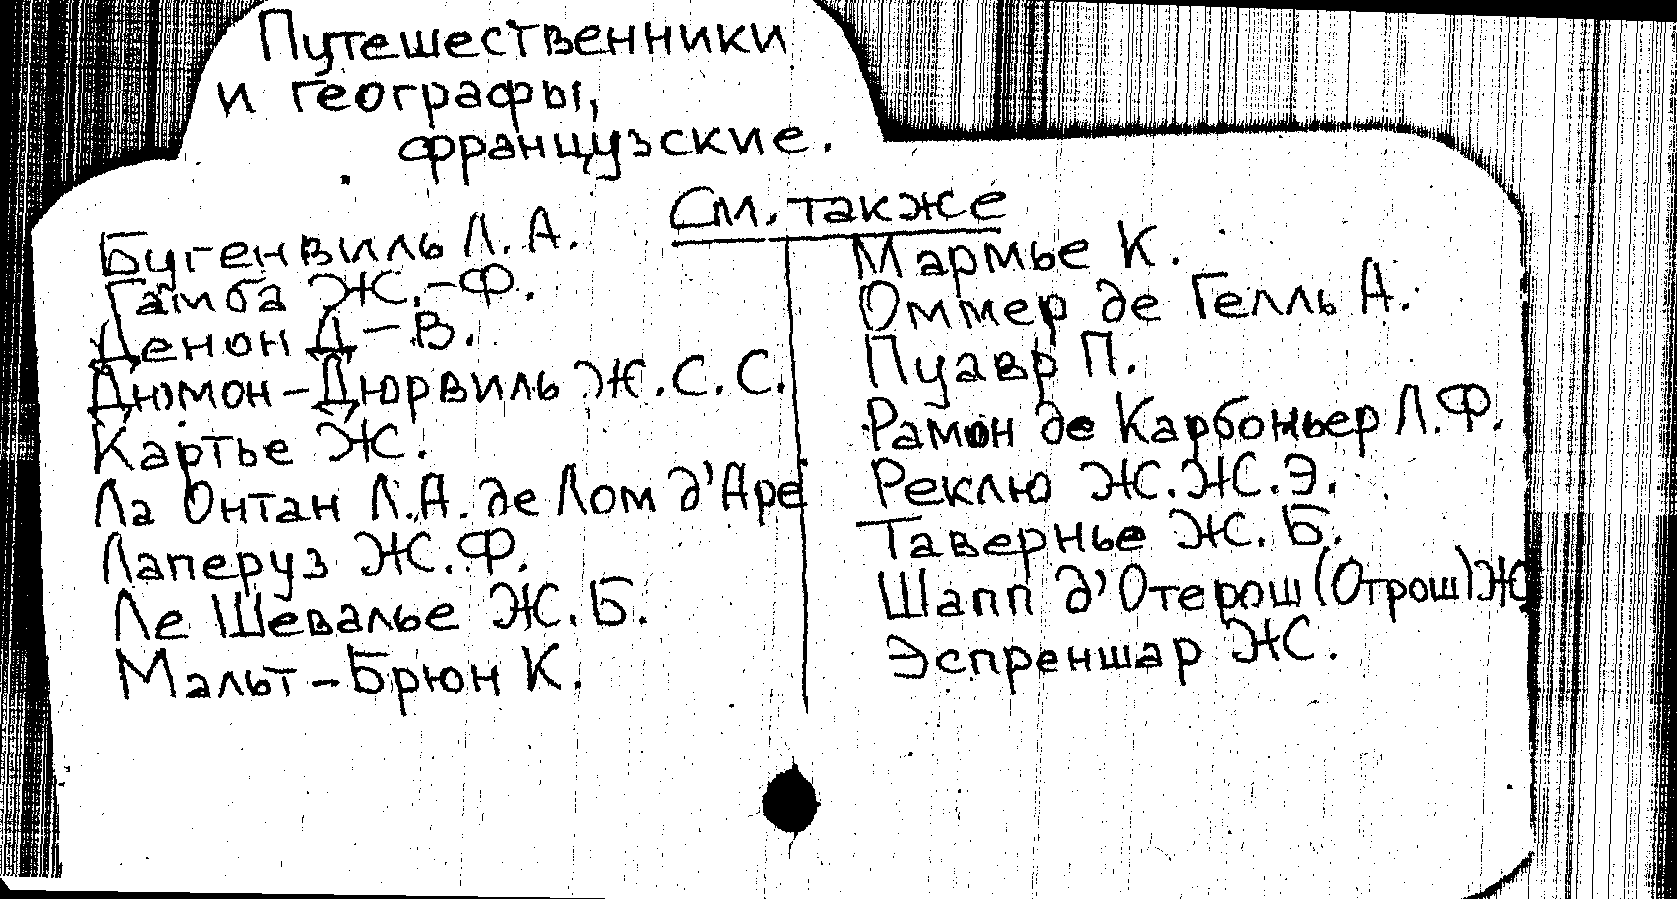 Путешественники
и географы,
французские.
См. также
Бугенвилль Л. А.
Гамба Ж.-Ф.
Денон Д-В.
Дюмон-Дюрвиль Ж.С.С.
Картье Ж.
Ла Онтан Л.А. де Лом д'Аре
Лаперуз Ж.Ф.
Ле Шевалье Ж.Б.
Мальт-Брюн К.
Мармье К.
Оммер де Гелль А.
Пуавр П.
Рамон де Карбоньер Л.Ф.
Реклю Ж.Ж.Э.
Тавернье Ж.Б.
Шапп д'Отерош (Отрош) Ж
Эспреншар Ж.